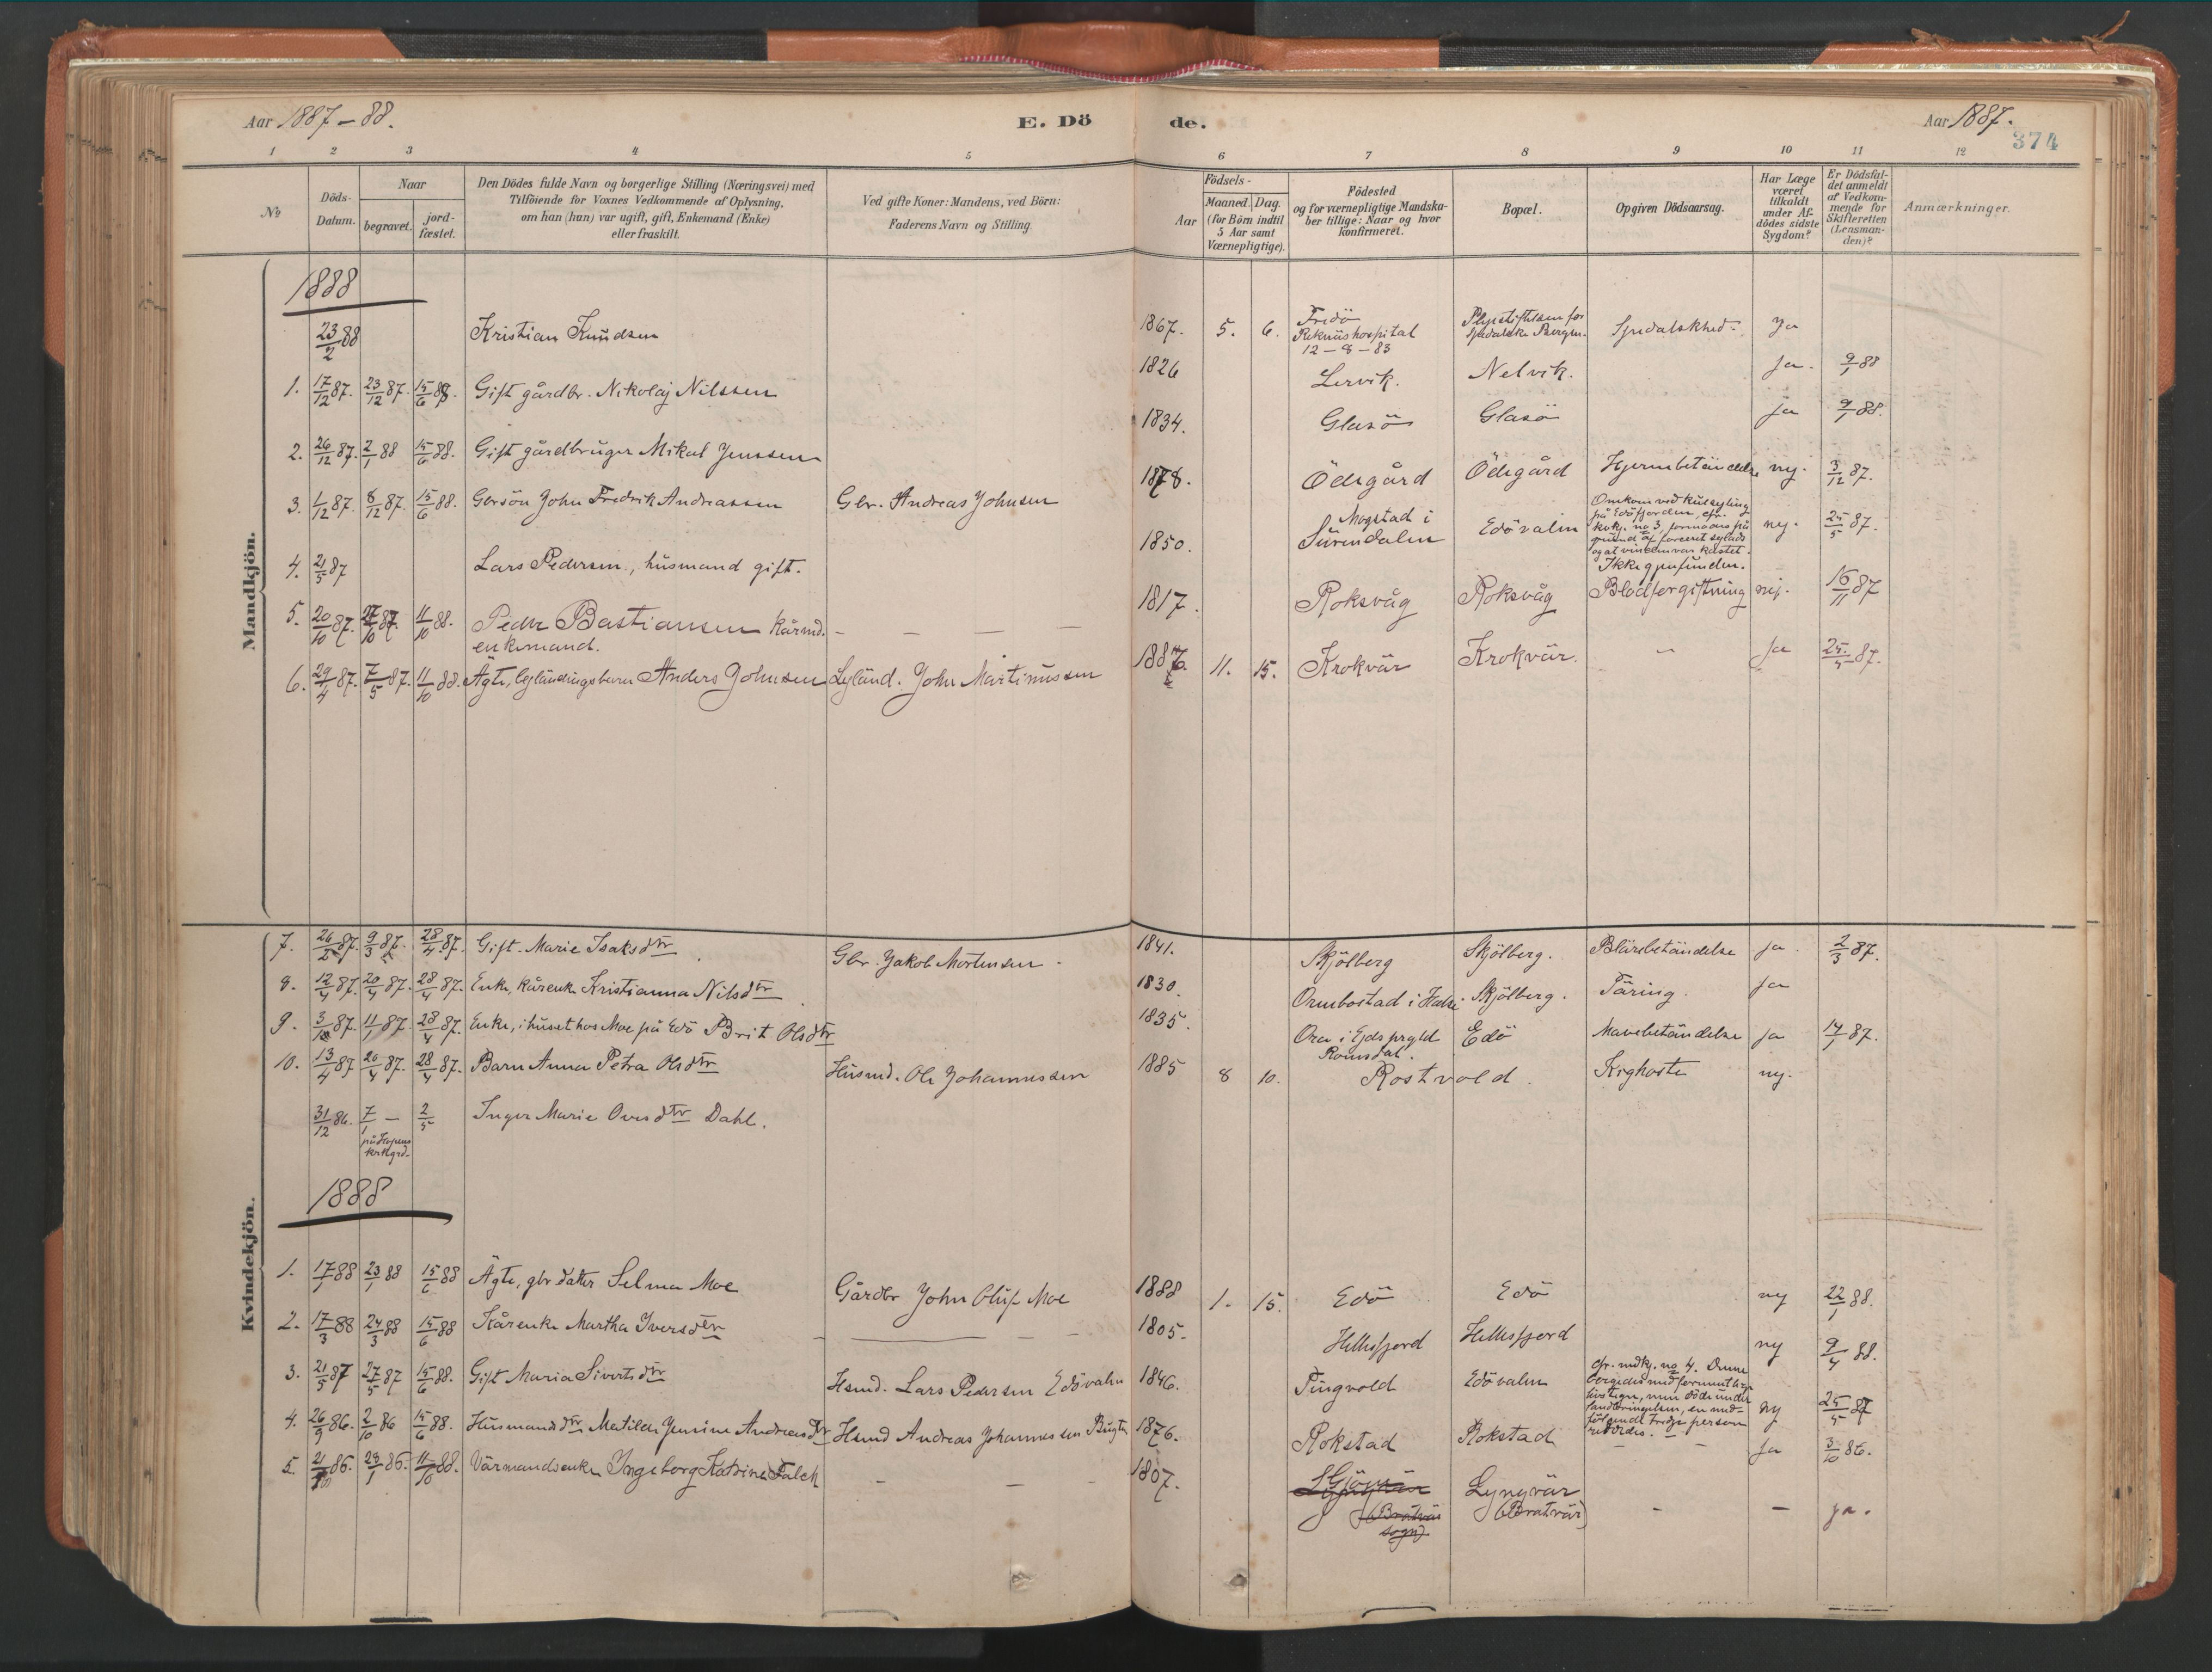 Aar 1887-88.
E. Dö
de.
Aar 1887.
374
1 2 3 4 5 6 7 8 9 10 11 12
No
Döds-
Datum.
Naar
begravet.
jord-
fæstet.
Den Dödes fulde Navn og borgerlige Stilling (Næringsvei) med
Tilföiende for Voxnes Vedkommende af Oplysning,
om han (hun) var ugift, gift, Enkemand (Enke)
eller fraskilt.
Ved gifte Koner: Mandens, ved Börn:
Faderens Navn og Stilling.
Födsels-
Aar
Maaned. Dag.
(for Börn indtil
5 Aar samt
Værnepligtige).
Födested
og for værnepligtige Mandska-
ber tillige: Naar og hvor
konfirmeret.
Bopæl.
Opgiven Dödsaarsag.
Har Læge
været
tilkaldt
under Af-
dödes sidste
Sygdom?
Er Dödsfal-
det anmeldt
af Vedkom-
mende for
Skifteretten
(Lensman-
den)?
Anmærkninger.
Mandkjön.
1888
23/2 88 Kristian Knudsen 1867. 5. 6. Fredö
Reknæshospital
12-8-83
Plejestiftelsen for
Spedalske Bergen.
Spedalskhed. Ja
1. 17/12 87. 23/12 87. 15/6 88. Gift gårdbr. Nikolaj Nilssen 1826 Lervik. Nelvik. Ja. 9/1 88
2. 26/12 87. 2/1 88 15/6 88. Gift gårdbruger Mikal Jenssen 1834. Glasö Glasö Ja 9/1 88.
3. 1/12 87. 8/12 87. 15/6 88. Gbrsön John Fredrik Andreassen Gbr. Andreas Johnsen 1878. Ödegård Ödegård Hjernebetændelse nej. 3/12 87.
4. 21/5 87 Lars Pedersen, husmand gift. 1850. Mogstad i
Surendalen
Edövalen
Omkom ved kulseyling
på Edöfjorden, cfr.
kvkj. no 3, formodes på
grund af forceret seylads
og at vinden var kastet.
Ikke gjenfunden.
nej. 25/5 87.
5. 20/10 87. 27/10 87. 11/10 88. Peder Bastiansen kårmd. - - - -
enkemand.
1817. Roksvåg Roksvåg Blodforgiftning nej. 16/11 87
6. 29/4 87. 7/5 87. 11/10 88. Ägte, leglændingsbarn Anders Johnsen Leglænd. John Martinussen 1886 11. 15. Krokvär Krokvär. - Ja 25/5 87.
Kvindekjön.
7. 26/2 87. 9/3 87. 28/4 87. Gift. Marie Isaksdtr. Gbr. Jakob Mortensen. 1841. Skjölberg Skjölberg. Blärebetändelse ja. 2/3 87.
8. 12/4 87. 20/4 87. 28/4 87. Enke, kårenke Kristianna Nilsdtr. 1830. Ormbostad i Halse Skjölberg. Täring. ja
9. 3/1 87. 11/1 87. 28/4 87. Enke, i huset hos Moe på Edö Brit Olsdtr 1835. Ora i Ejds prgld
Romsdal.
Edö Mavebetändelse Ja 14/1 87.
10. 13/4 87 20/4 87. 28/4 87. Barn Anna Petra Olsdtr Husmd. Ole Johannessen 1885 8 10. Rostvold. Kighoste nej.
31/12 86. 7/1 - 2/5 Inger Marie Ovesdtr Dahl.
på Hopens
kirkegrd.
1888
1. 17/1 88 23/1 88 15/6 88 Ägte, gbr datter Selma Moe Gårdbr John Oluf Moe 1888 1. 15. Edö Edö nej 22/1 88.
2. 17/3 88 24/3 88 15/6 88 Kårenke Martha Iversdtr 1805. Hellesfjord Hellesfjord nej 9/4 88.
3. 21/5 87 27/5 87 15/6 88. Gift Maria Sivertsdtr Hsmd. Lars Pedersen Edövalen 1846. Tingvold Edövalen
cfr. mdkj. no 4. Denne
bergedes med formentlige
livstegn, men döde under
landbringelsen, en med-
fölgende tredje person
reddedes.
nej 25/5 87
4. 26/9 86. 2/10 86 15/6 88. Husmandsdtr Matilda Jensine Andreasdtr Hsmd Andreas Johannessen Bugten 1876. Rokstad Rokstad - - Ja 3/10 86.
5. 86. 29/1 86. 11/10 88. Värmandsenke Ingeborg Katrine Falck - - 1807. Lyngvär
(Bratvär)
- - ja.
(Bratvär
sogn)